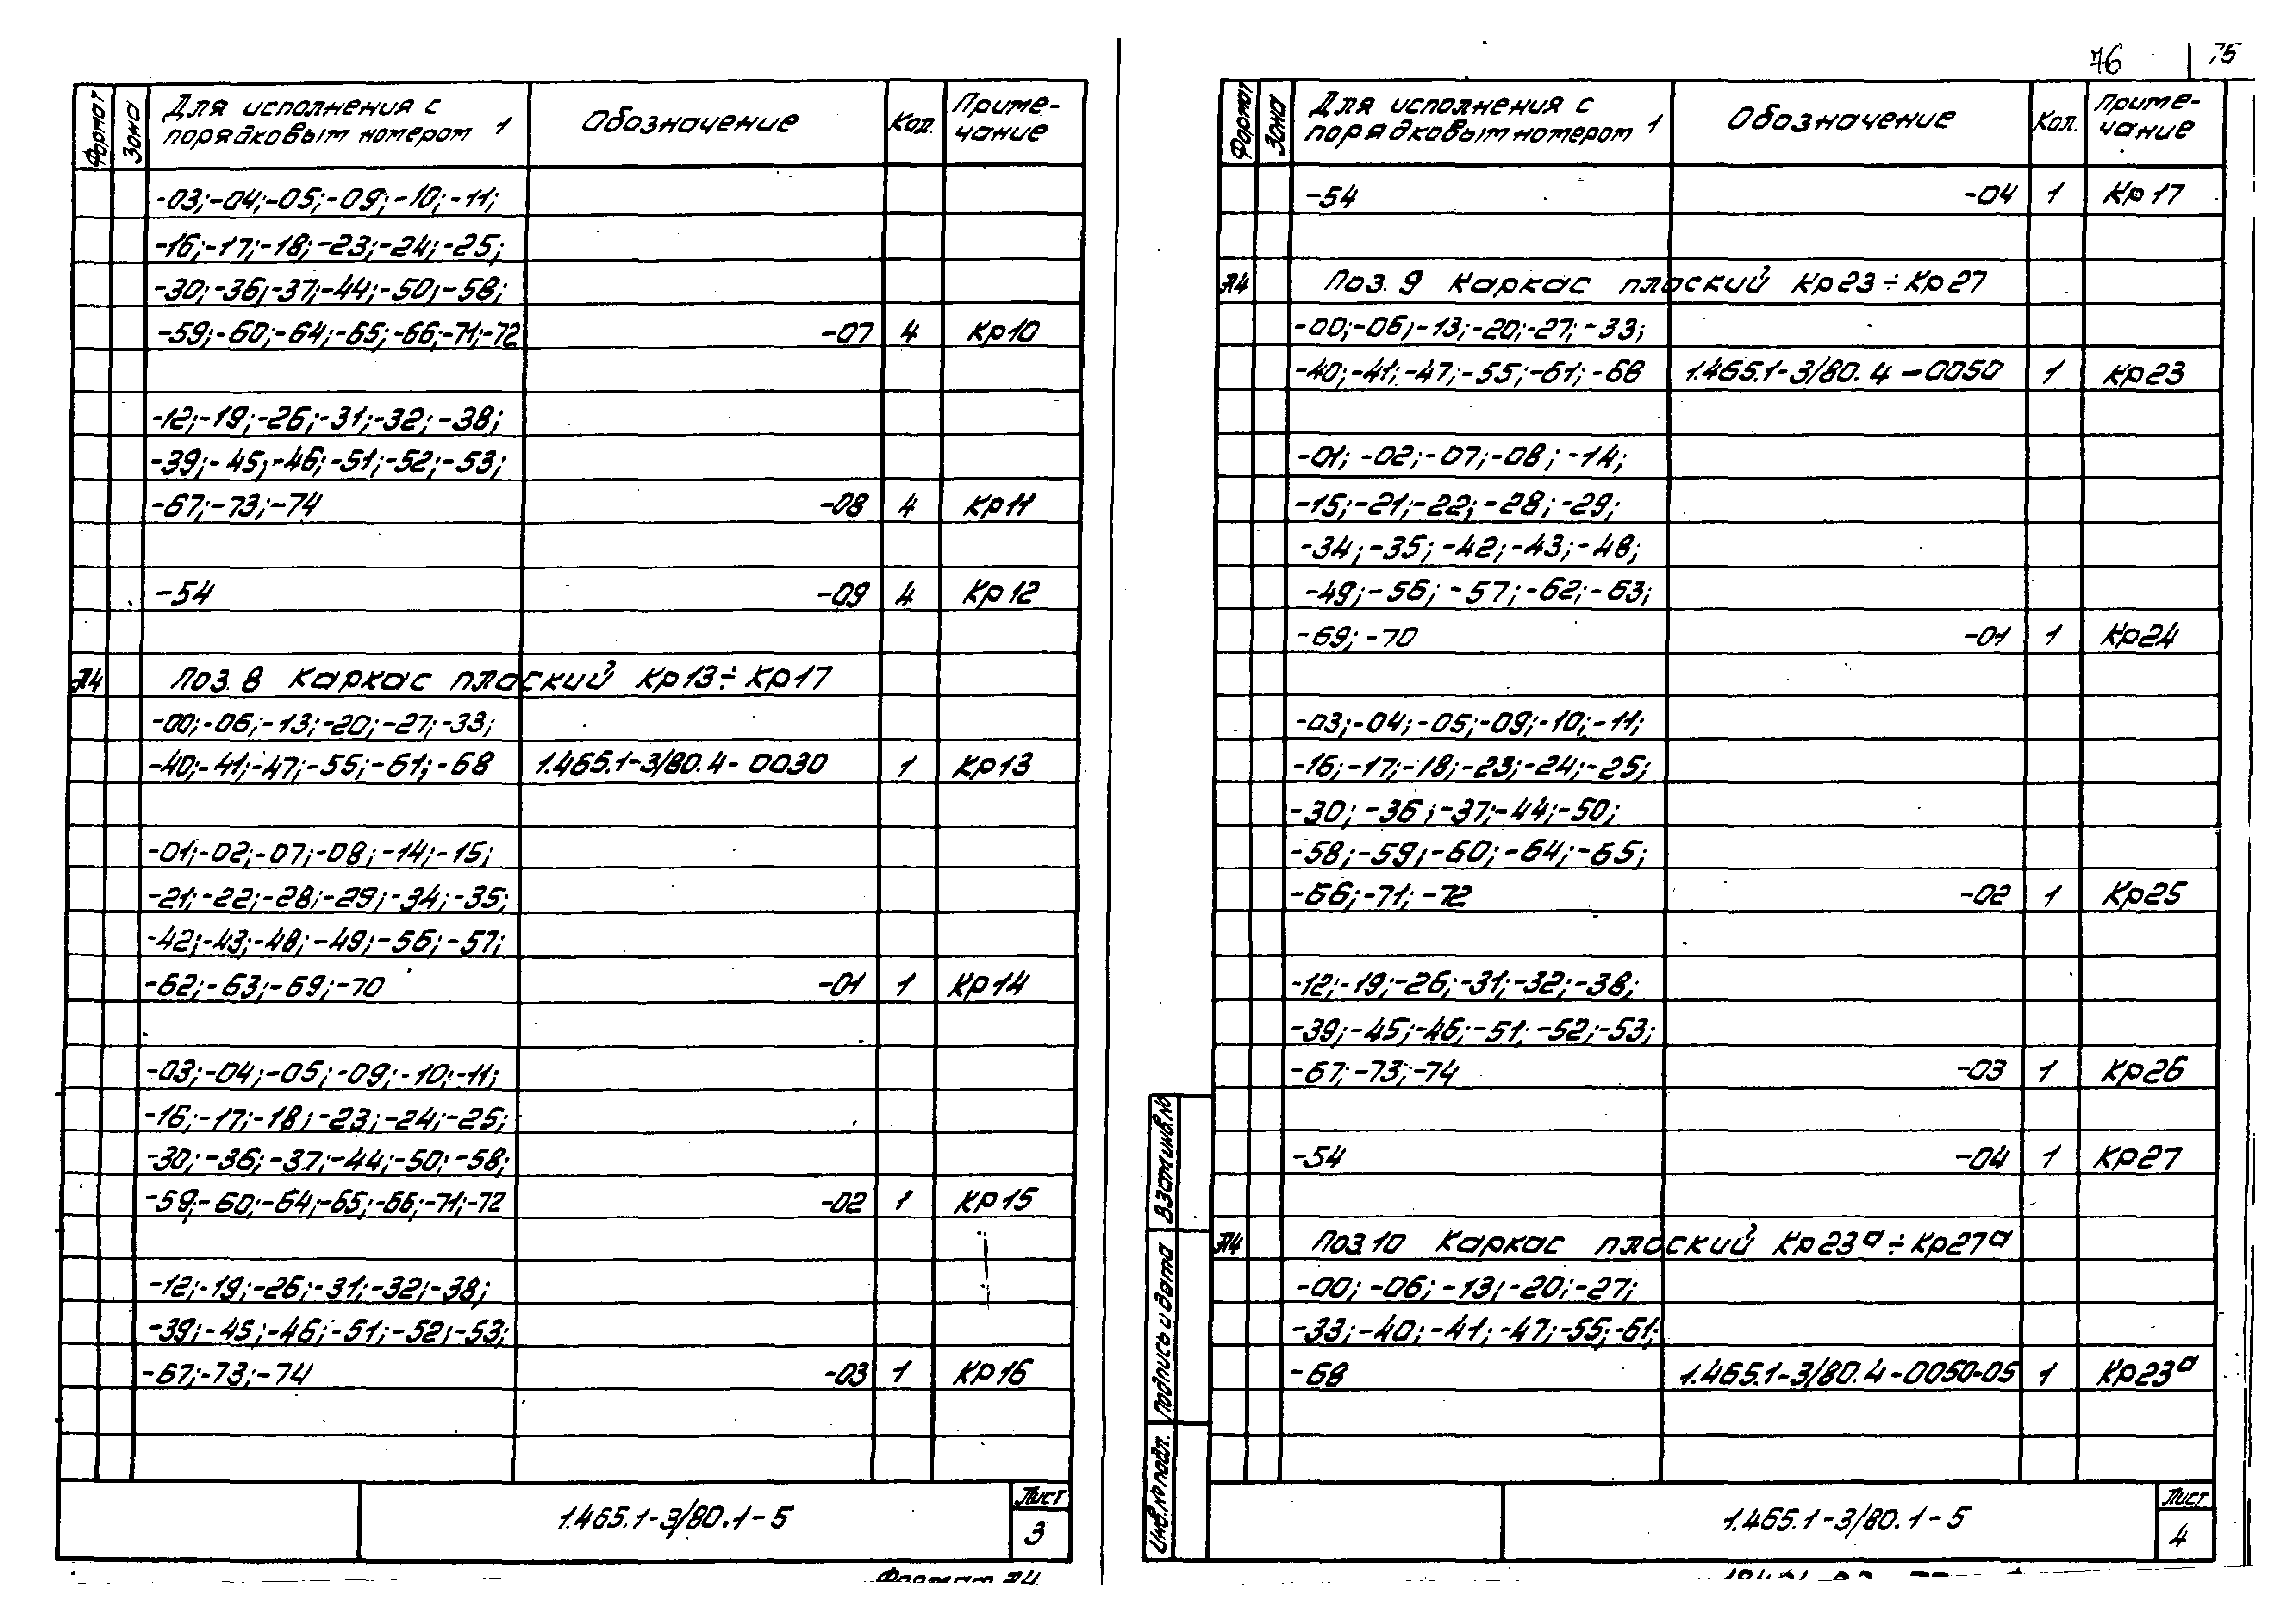 76 75
Формат Зона Для исполнения с порядковым номером 1 Обозначение Кол. Примечание
-03;-04;-05;-09;-10;-11;
-16;-17;-18;-23;-24;-25;
-30;-36;-37;-44;-50;-58;
-59;-60;-64;-65;-66;-71;-72 -07 4 Кр10
-12;-19;-26;-31;-32;-38;
-39;-45;-46;-51;-52;-53;
-67;-73;-74 -08 4 Кр11
-54 -09 4 Кр12
А4 Поз. 8 Каркас плоский Кр13÷Кр17
-00;-06;-13;-20;-27;-33;
-40;-41;-47;-55;-61;-68 1.465.1-3/80.4-0030 1 Кр13
-01;-02;-07;-08;-14;-15;
-21;-22;-28;-29;-34;-35;
-42;-43;-48;-49;-56;-57;
-62;-63;-69;-70 -01 1 Кр14
-03;-04;-05;-09;-10;-11;
-16;-17;-18;-23;-24;-25;
-30;-36;-37;-44;-50;-58;
-59;-60;-64;-65;-66;-71;-72 -02 1 Кр15
-12;-19;-26;-31;-32;-38;
-39;-45;-46;-51;-52;-53;
-67;-73;-74 -03 1 Кр16
1.465.1-3/80.1-5 Лист 3
Формат А4
Формат Зона Для исполнения с порядковым номером 1 Обозначение Кол. Примечание
-54 -04 1 Кр17
А4 Поз. 9 Каркас плоский Кр23÷Кр27
-00;-06;-13;-20;-27;-33;
-40;-41;-47;-55;-61;-68 1.465.1-3/80.4-0050 1 Кр23
-01;-02;-07;-08;-14;
-15;-21;-22;-28;-29;
-34;-35;-42;-43;-48;
-49;-56;-57;-62;-63;
-69;-70 -01 1 Кр24
-03;-04;-05;-09;-10;-11;
-16;-17;-18;-23;-24;-25;
-30;-36;-37;-44;-50;
-58;-59;-60;-64;-65;
-66;-71;-72 -02 1 Кр25
-12;-19;-26;-31;-32;-38;
-39;-45;-46;-51;-52;-53;
-67;-73;-74 -03 1 Кр26
-54 -04 1 Кр27
А4 Поз.10 Каркас плоский Кр23а÷Кр27а
-00;-06;-13;-20;-27;
-33;-40;-41;-47;-55;-61;
-68 1.465.1-3/80.4-0050-05 1 Кр23а
Взам.инв.№
Подпись и дата
Инв.№ подл.
1.465.1-3/80.1-5 Лист 4